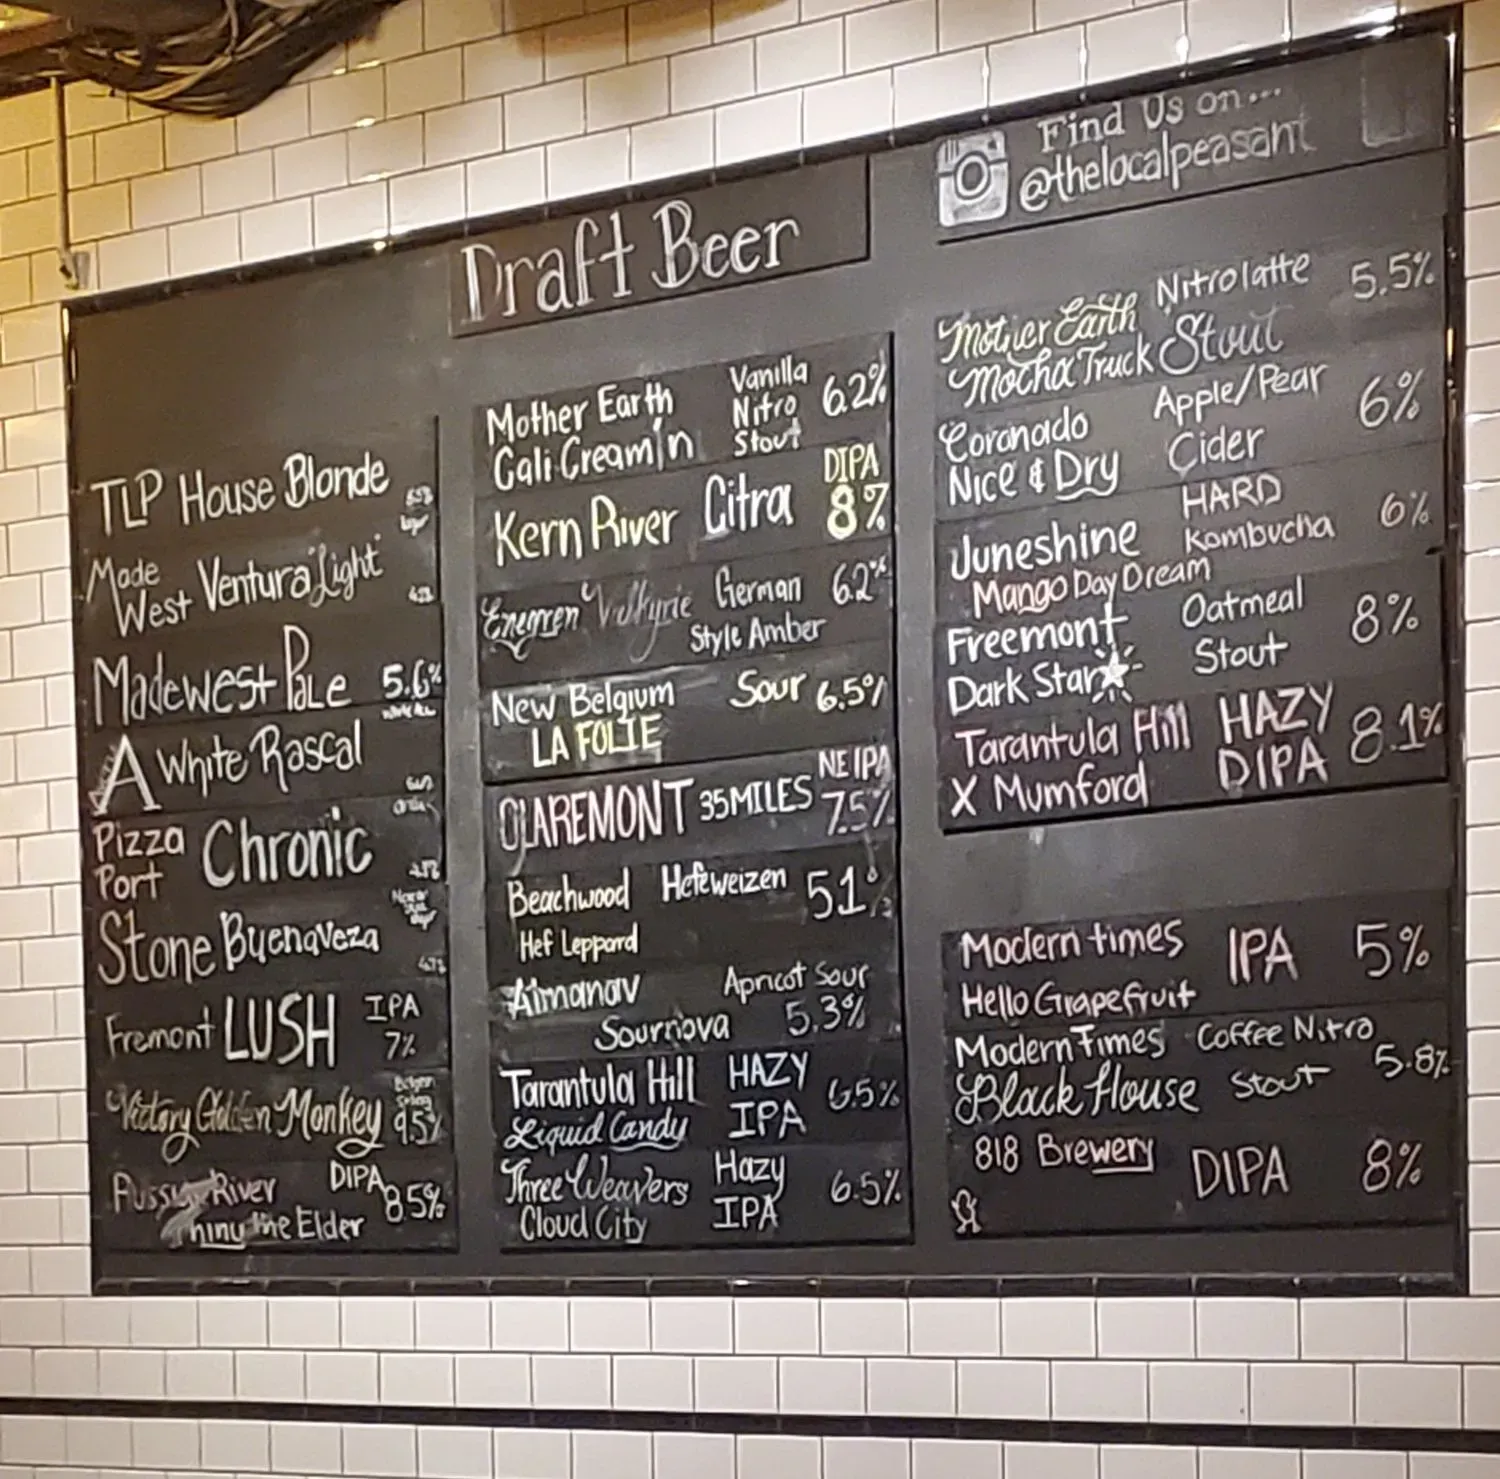 Draft Beer
Find Us on...
@thelocalpeasant
TLP House Blonde
Made
West Ventura "Light"
Madewest Pale 5.6%
A White Rascal
Pizza
Port Chronic
Stone Buenaveza
Fremont LUSH IPA
7%
Victory Golden Monkey 9.5%
River DIPA
the Elder 8.5%
Mother Earth Vanilla
Cali Creamin Nitro
Stout 6.2%
Kern River Citra DIPA
8%
Valkyrie German 6.2%
Style Amber
New Belgium Sour 6.5%
LA FOLIE
CLAREMONT 35 MILES NE IPA
7.5%
Beachwood Hefeweizen 5.1%
Hef Leppard
Almanav Apricot Sour
Sournova 5.3%
Tarantula Hill HAZY
Liquid Candy IPA 6.5%
Three Weavers Hazy
Cloud City IPA 6.5%
Mother Earth Nitro latte 5.5%
Mocha Truck Stout
Coronado Apple/Pear 6%
Nice & Dry Cider
Juneshine HARD
Kombucha 6%
Mango Day Dream
Freemont Oatmeal 8%
Dark Star Stout
Tarantula Hill HAZY 8.1%
X Mumford DIPA
Modern times IPA 5%
Hello Grapefruit
Modern Times Coffee Nitro 5.8%
Black House Stout
818 Brewery DIPA 8%